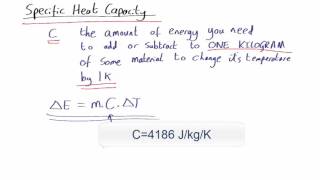 Specific Heat Capacity
C the amount of energy you need
to add or subtract to ONE KILOGRAM
of some material to change it's temperature
by 1K
ΔE = m.C.ΔT
C=4186 J/kg/K